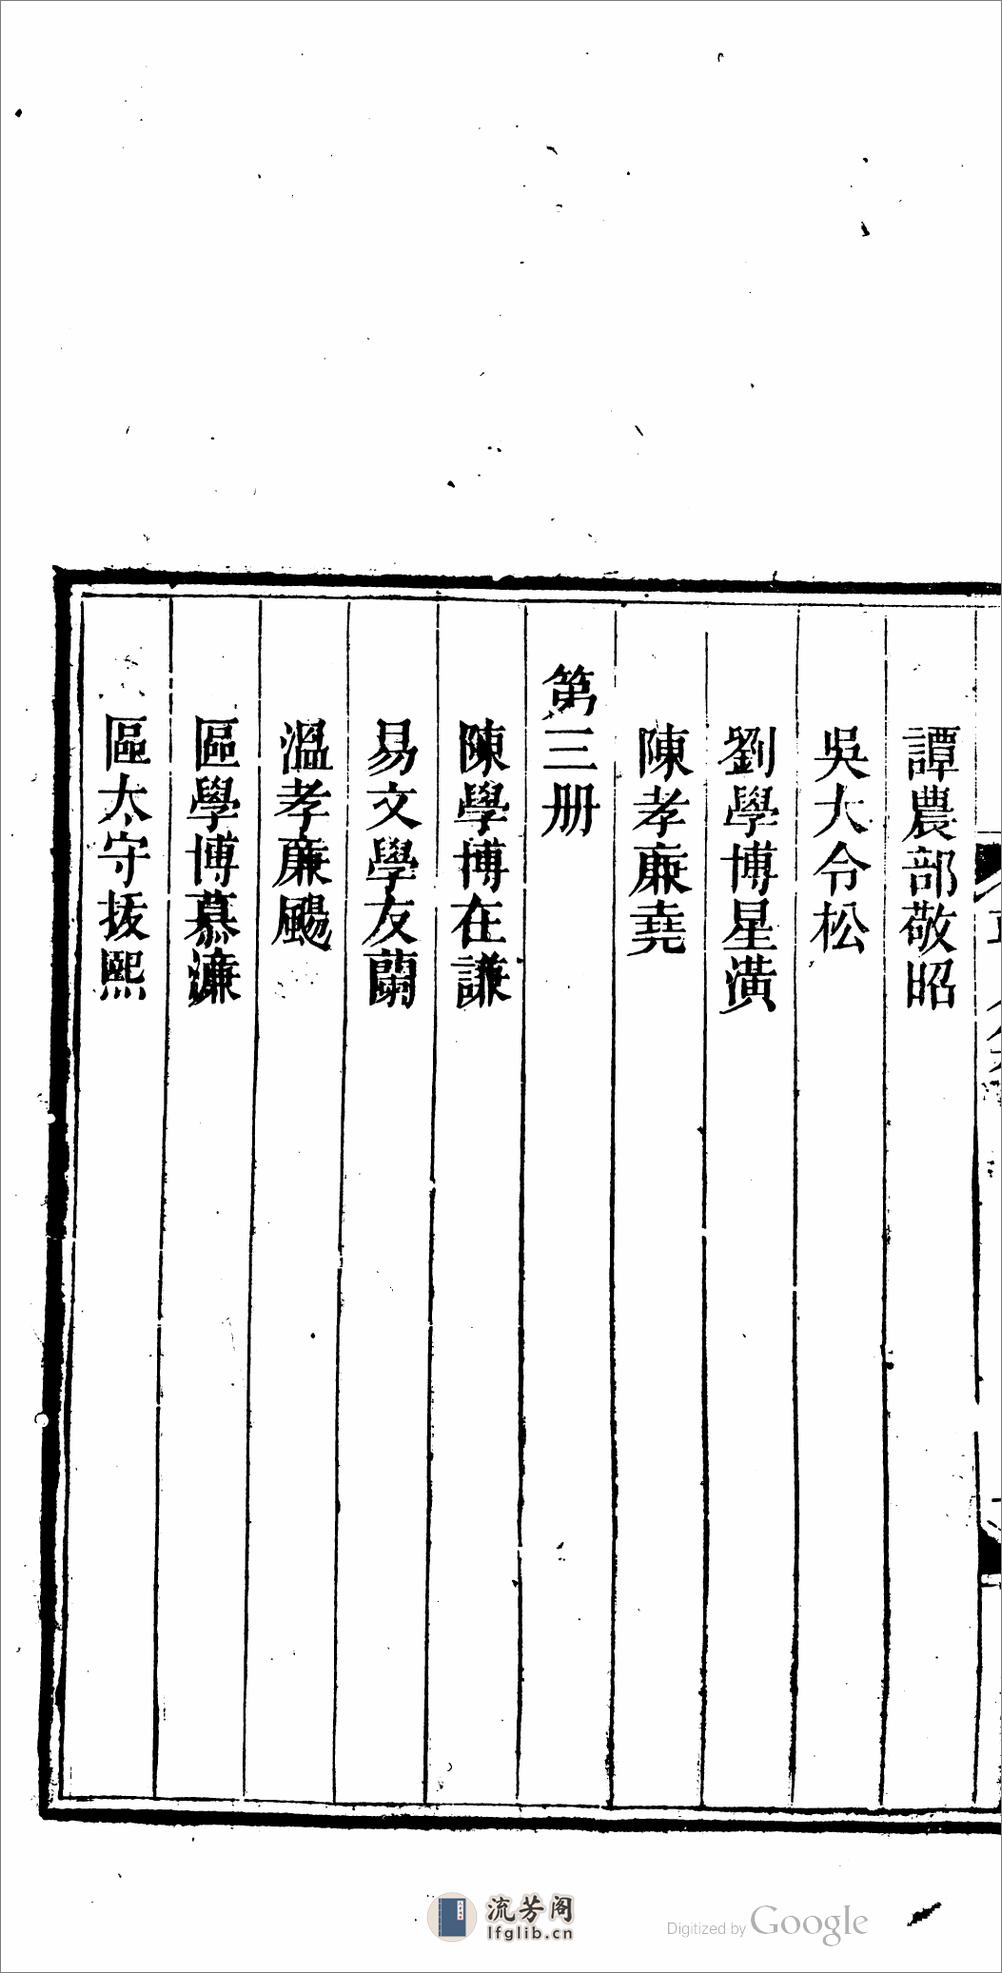 譚農部敬昭
吳大令松
劉學博星潢
陳孝廉堯
第三册
陳學博在謙
易文學友蘭
溫孝廉颺
區學博慕濂
區太守拔熙
流芳阁
lfglib.cn
Digitized by Google